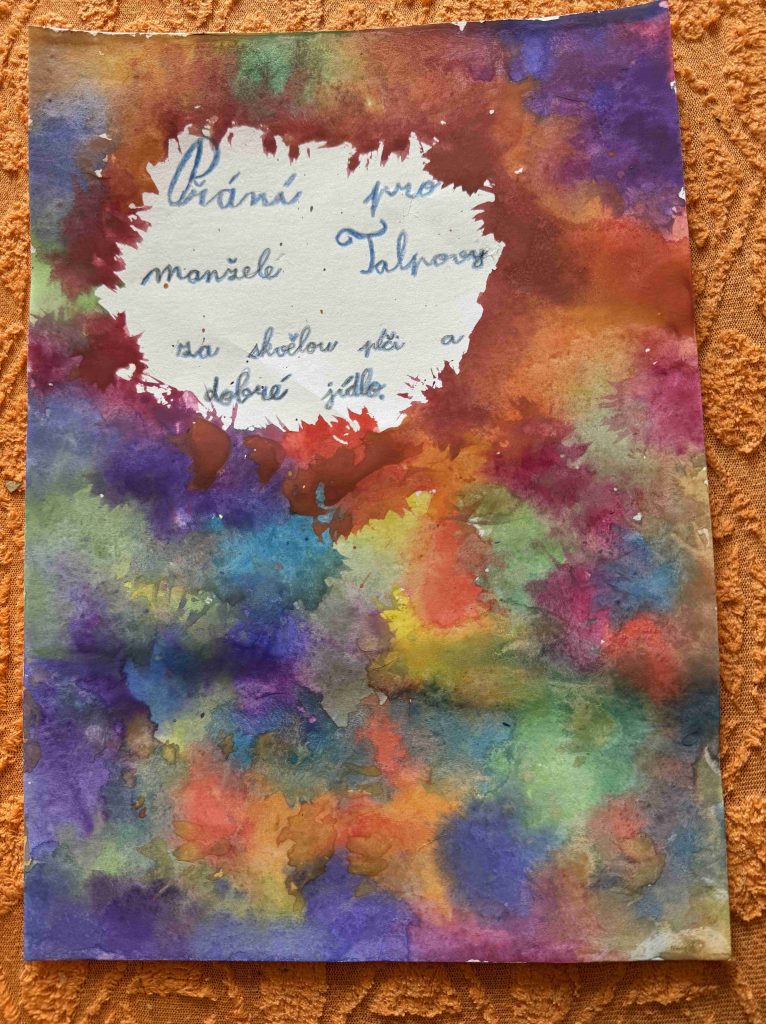 Přání pro
manželé Talpovy
za skvělou péči a
dobré jídlo.